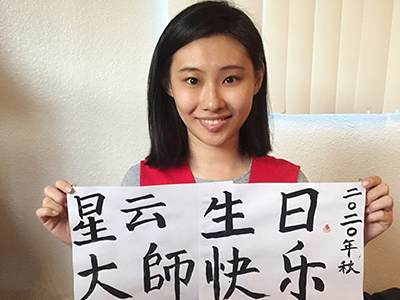 星云
大師
生日
快乐
二〇二〇年秋